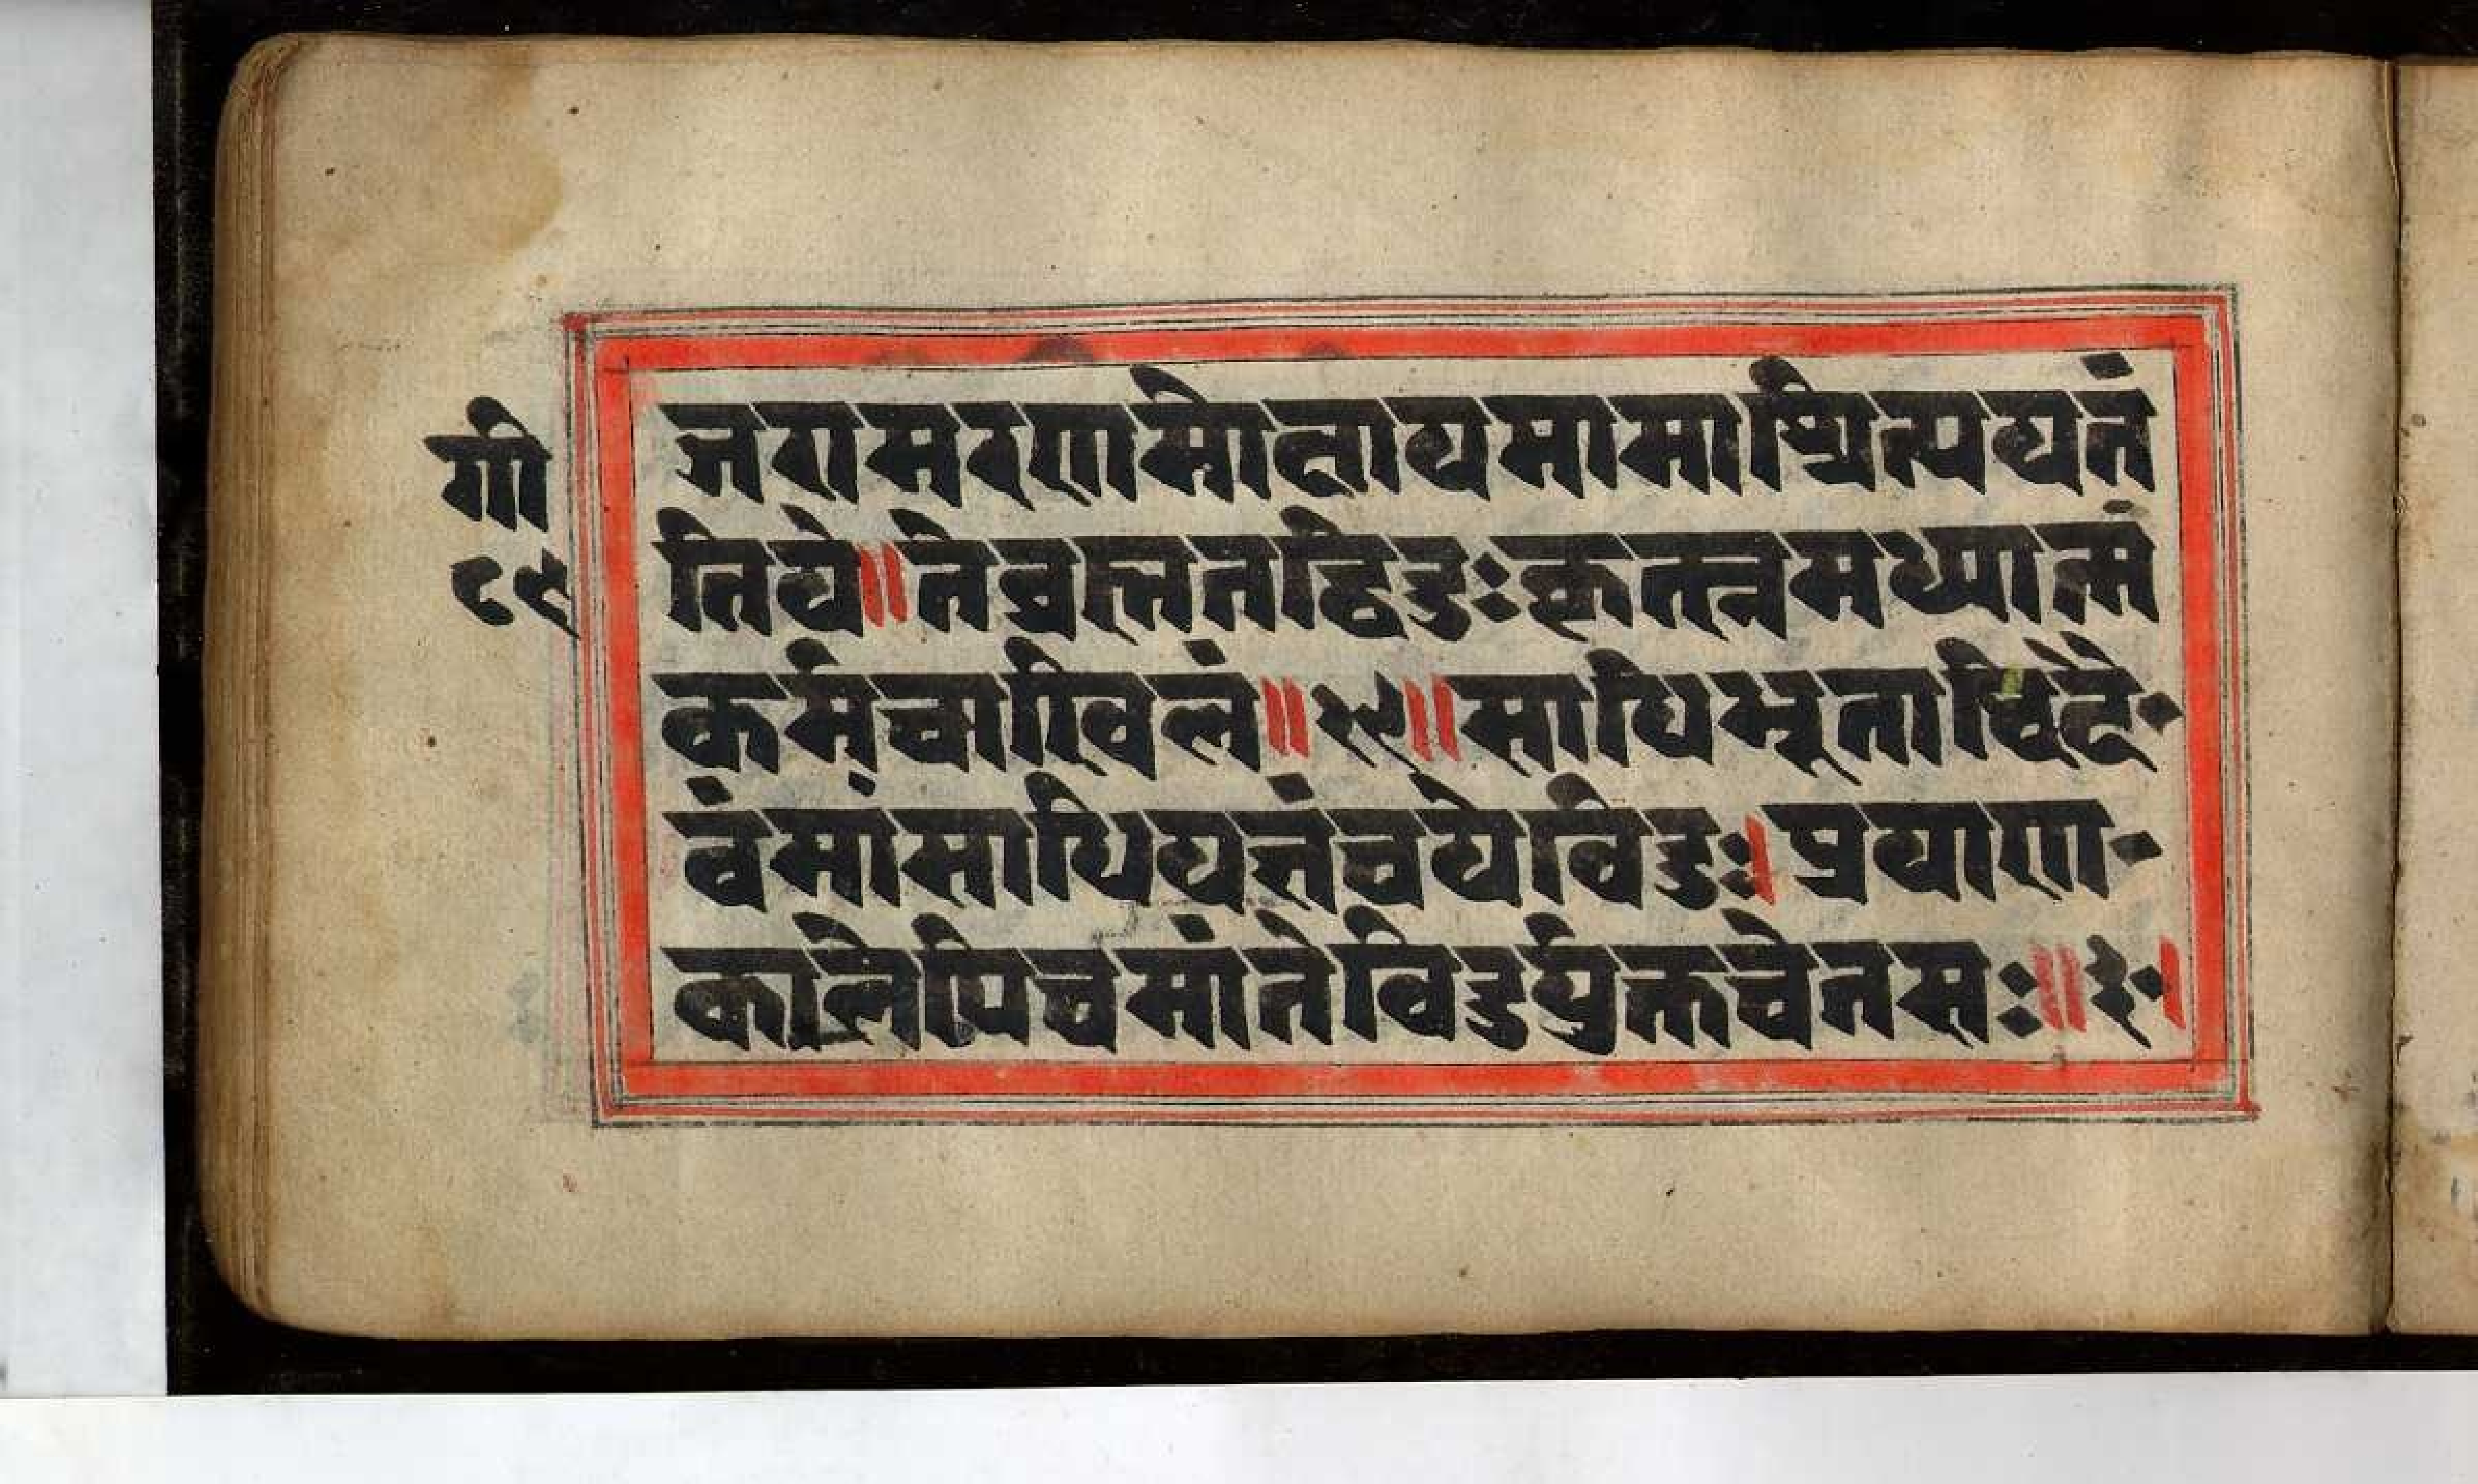 गी
८९
जरामरणमोक्षायमामाश्रित्ययतं
तिये॥तेब्रह्मतद्विदुःकृत्स्नमध्यात्मं
कर्मचाखिलं॥२९॥साधिभूताधिदै॰
वंमांसाधियज्ञंचयेविदुः।प्रयाण॰
कालेपिचमांतेविदुर्युक्तचेतसः॥३॰।